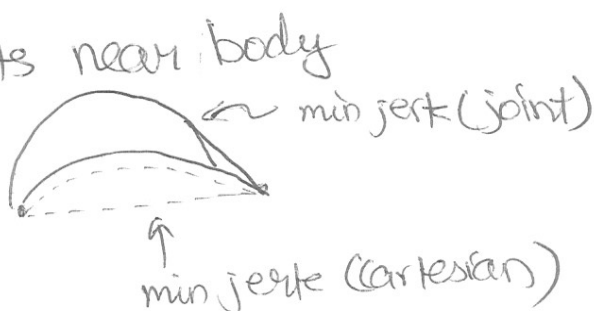 near body
min jerk (joint)
min jerk (cartesian)